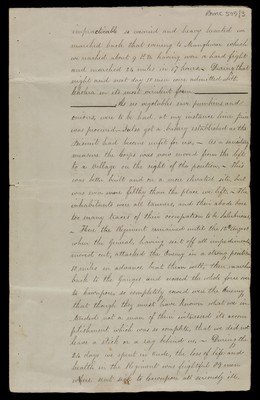 BANC 203/2
impracticable so wearied and heavy hearted we
marched back that evening to Mungulwar which
we reached about 9 P.M. having won a hard fight
and marched 24 miles in 17 hours. During that
night and next day 10 men were admitted with
cholera in its most virulent form
As no vegetables save pumkins and
onions were to be had, at my instance lime juice
was procured. I also got a bakery established as the
biscuit had become unfit for use. As a sanitary
measure the Corps was moved from the left
to a village on the right of the position. This
was better built and on a more elevated site, but
was even more filthy than the place we left. The
inhabitants were all tanners, and their abode bore
too many traces of their occupation to be salubrious
Here the Regiment remained until the 11th August
when the General, having sent off all impedimenta
moved out, attacked the enemy in a strong position
10 miles in advance beat them well, then marched
back to the Ganges and crossed the whole force over
to Cawnpore, so completely cowed were the Enemy
that though they must have known what we in-
tended not a man of them witnessed its accom-
plishment which was so complete, that we did not
leave a stick or a rag behind us. During the
24 days we spent in Oude, the loss of life and
health in the Regiment was frightful 89 men
were sent to Cawnpore all seriously ill,